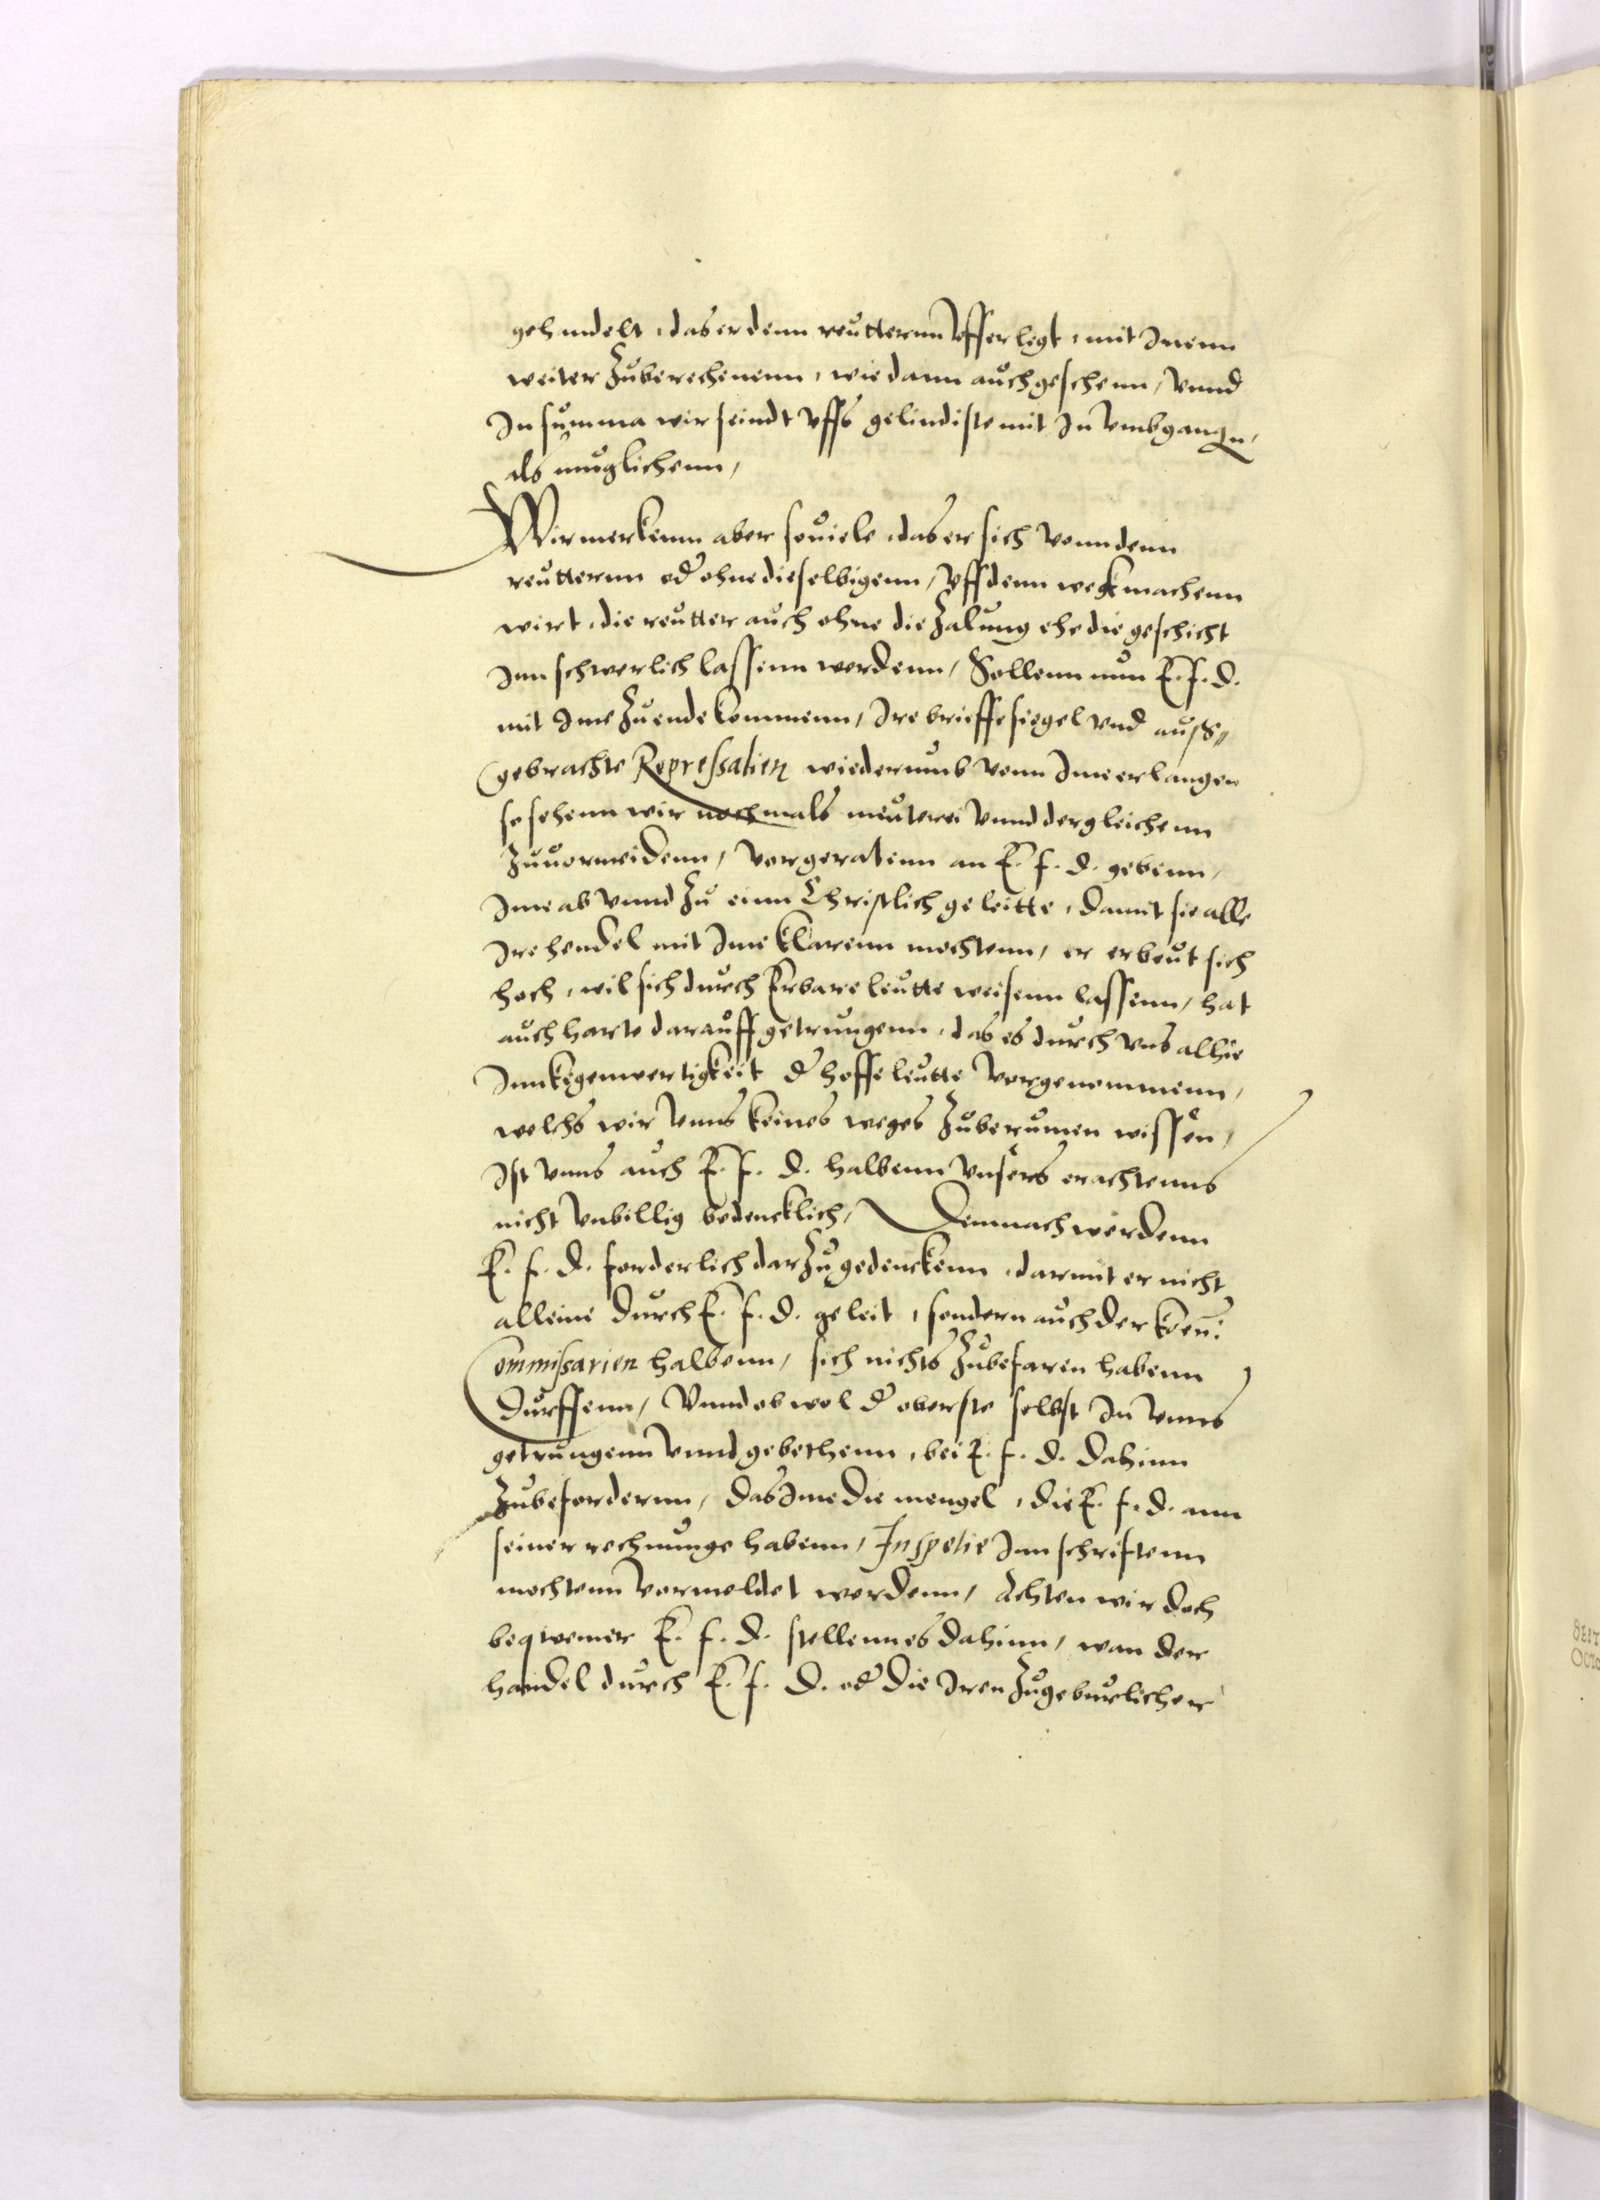 gehandelt, das er denn reutternn vfferlegt, mit Inenn
weiter Zuberechenenn, wie dann auch geschenn, vnnd
In summa wir seindt vffs gelindiste mit In vmbgangen,
als muglichenn,
Wir merkenn aber souiele, das er sich vonn denn
reutternn oder ohne dieselbigenn, vff denn wegk machenn
wirt, die reutter auch ohne die Zalung ehe die geschicht
Inn schwerlich lassenn werdenn, Sollenn nun E. f. d.
mit Ime Zu ende kommenn, Ire brieffe siegel vnd auß„
gebrachte Repressalien wiederumb vonn Ime erlangen
so sehenn wir nochmals meuterei vnnd dergleichenn
Zuuormeidenn, vor geratenn an E. f. d. gebenn,
Ime ab vnnd Zu einn Christlich geleitte, damit sie alle
Ire hendel mit Ime klarenn mochtenn, er erbeut sich
hoch, wil sich durch Erbare leutte weisenn lassenn, hat
auch harte darauff getrungenn, das es durch vns alhie
Inn kegenwertigkeit der hoffeleutte vorgenommenn,
welchs wir vnns keines weges Zuberumen wissen,
Ist vnns auch E. f. d. halbenn vnsers erachtenns
nicht vnbillig bedencklich, Demnach werdenn
E. f. d. forderlich darZu gedenckenn, darmit er nicht
alleine durch E. f. d. geleit, sondern auch der kön:
Commissarien halbenn, sich nichts Zubefaren habenn
durffenn, Vnnd ob wol der oberste selbst In vnns
getrungenn vnnd gebethenn, bei E. f. d. dahinn
Zubefordernn, das Ime die mengel, die E. f. d. ann
seiner rechnunge habenn, In spetie Inn schrifftenn
mochtenn vormeldet werdenn, Achten wir doch
beqwemer E. f. d. stellenn es dahinn, wan der
handel durch E. f. d. oder die Iren Zugeburlicher